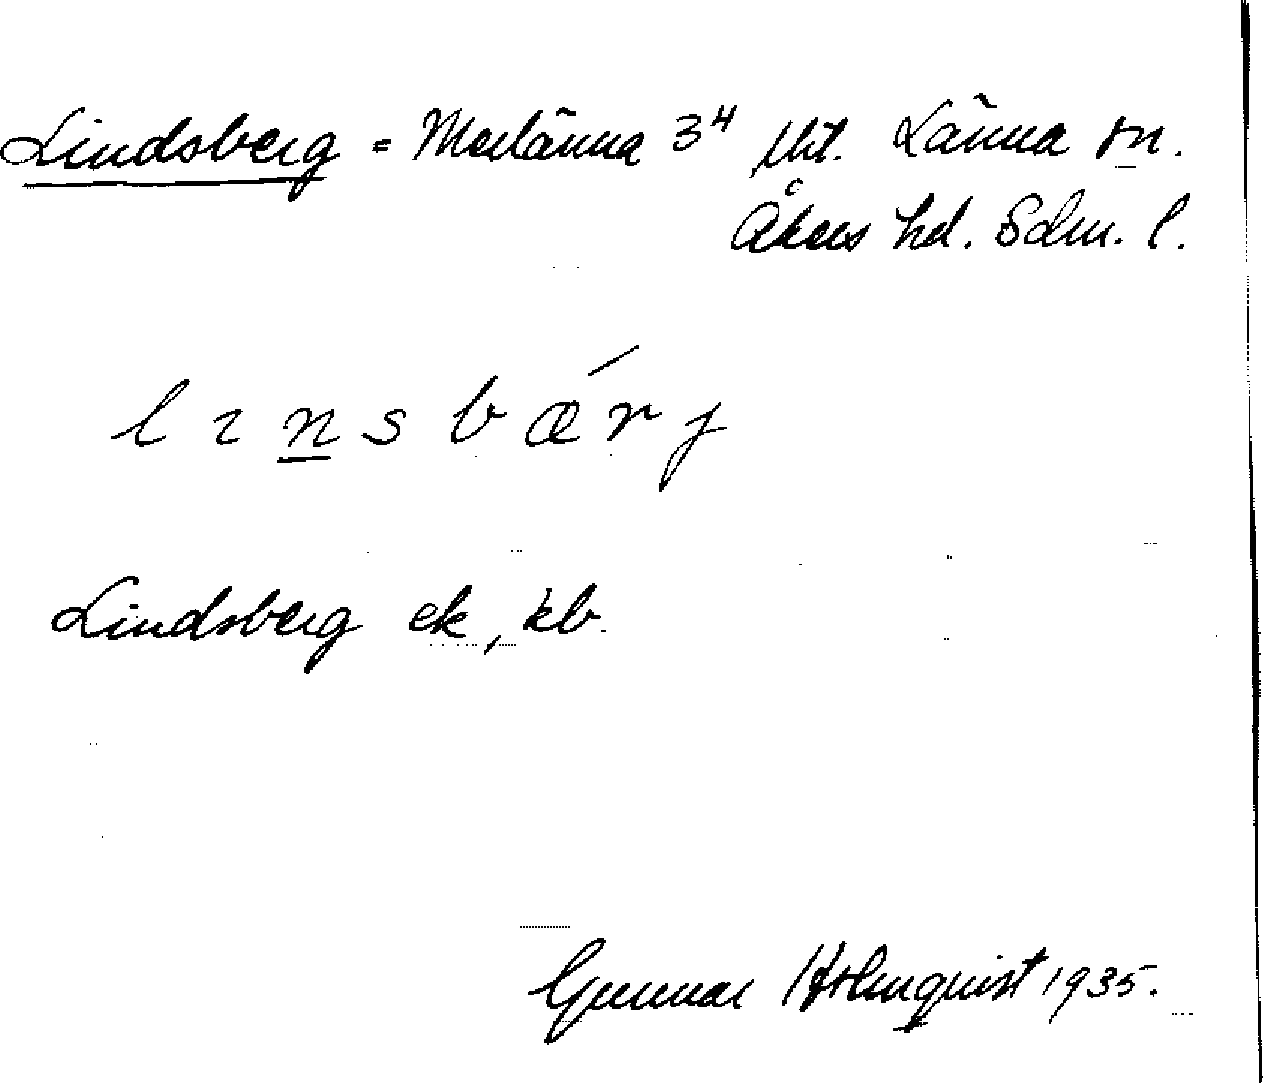 Lindsberg = Merlänna 3⁴ lht. Länna sn.
Åkers hd. Sdm. l.
lınsbærj
Lindsberg ek, kb.
Gunnar Holmquist 1935.